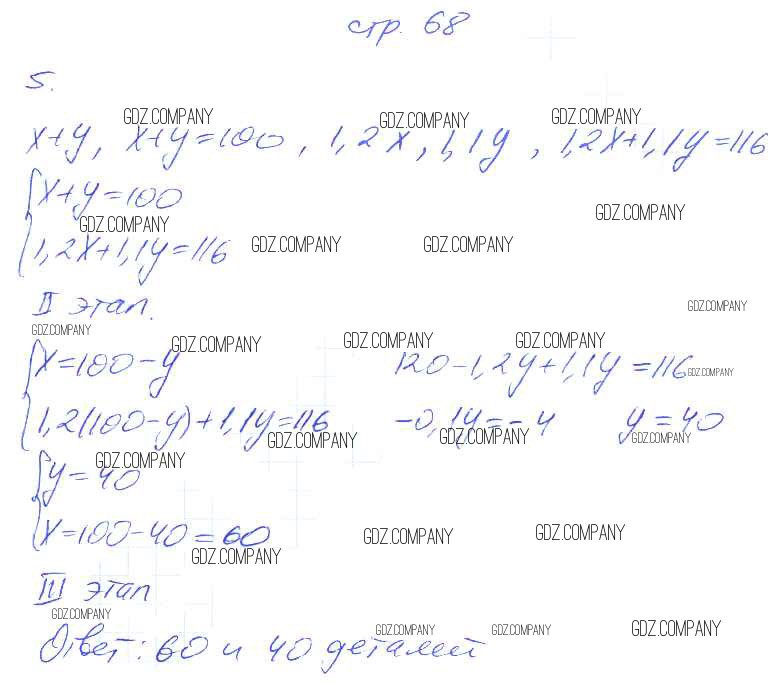 стр. 68
5.
GDZ.COMPANY GDZ.COMPANY GDZ.COMPANY
x+y, x+y=100, 1,2x, 1,1y, 1,2x+1,1y=116
x+y=100
GDZ.COMPANY GDZ.COMPANY
1,2x+1,1y=116 GDZ.COMPANY GDZ.COMPANY
II этап.
GDZ.COMPANY
GDZ.COMPANY GDZ.COMPANY GDZ.COMPANY GDZ.COMPANY
x=100-y 120-1,2y+1,1y=116 GDZ.COMPANY
1,2(100-y)+1,1y=116 -0,1y=-4 y=40
GDZ.COMPANY GDZ.COMPANY GDZ.COMPANY
GDZ.COMPANY
y=40
x=100-40=60 GDZ.COMPANY GDZ.COMPANY
GDZ.COMPANY
III этап
GDZ.COMPANY GDZ.COMPANY GDZ.COMPANY GDZ.COMPANY
Ответ: 60 и 40 деталей